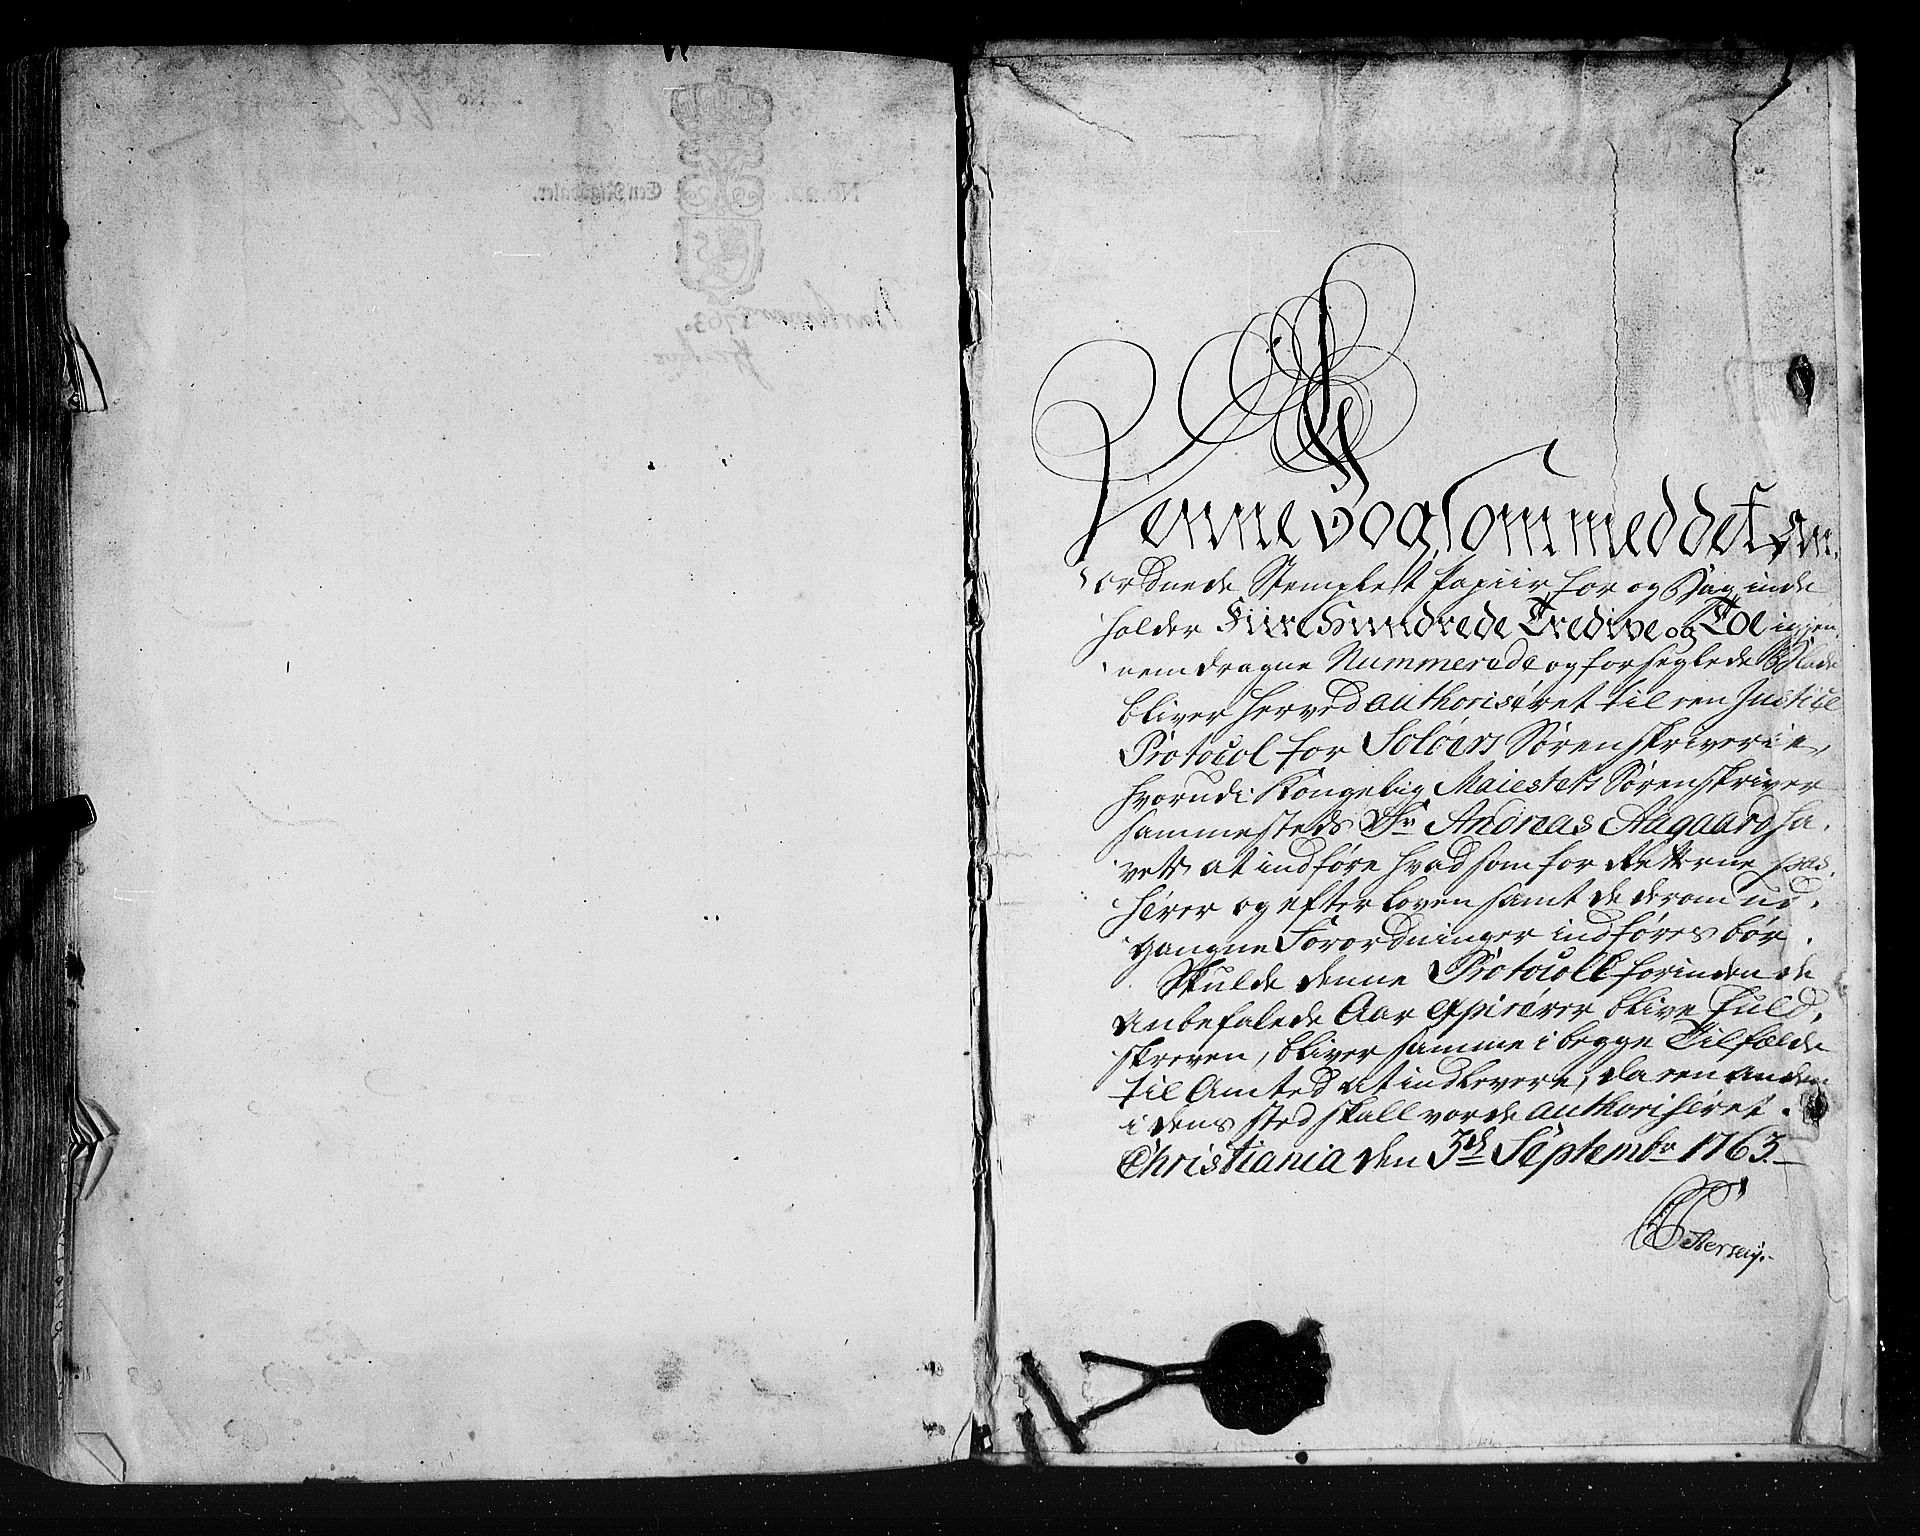 Denne Bog som med det an-
ordnede Stemplet Papiir for og bag inde
holder Fiire Hundrede Tredive og Toe igien-
nemdragne Nummerede og forseglede Blade
bliver herved authoriseret til een Justice
Protocol for Soløers Sørenskriverie,
hvorudi Kongelig Maiestets Sørenskriver
sammesteds Hr Andreas Aagaard ha-
ver at indføre hvad som for Retterne pas-
serer og efter Loven samt de derom ud-
gangne Forordninger indføres bør.
Skulde denne Protocoll forinden de
anbefalede Aar expirerer blive fuld-
skreven, bliver samme i begge Tilfælde
til Amtet at indlevere, da een anden
i dens sted skall vorde authoriseret.
Christiania den 3d Septembr 1763.
Storm